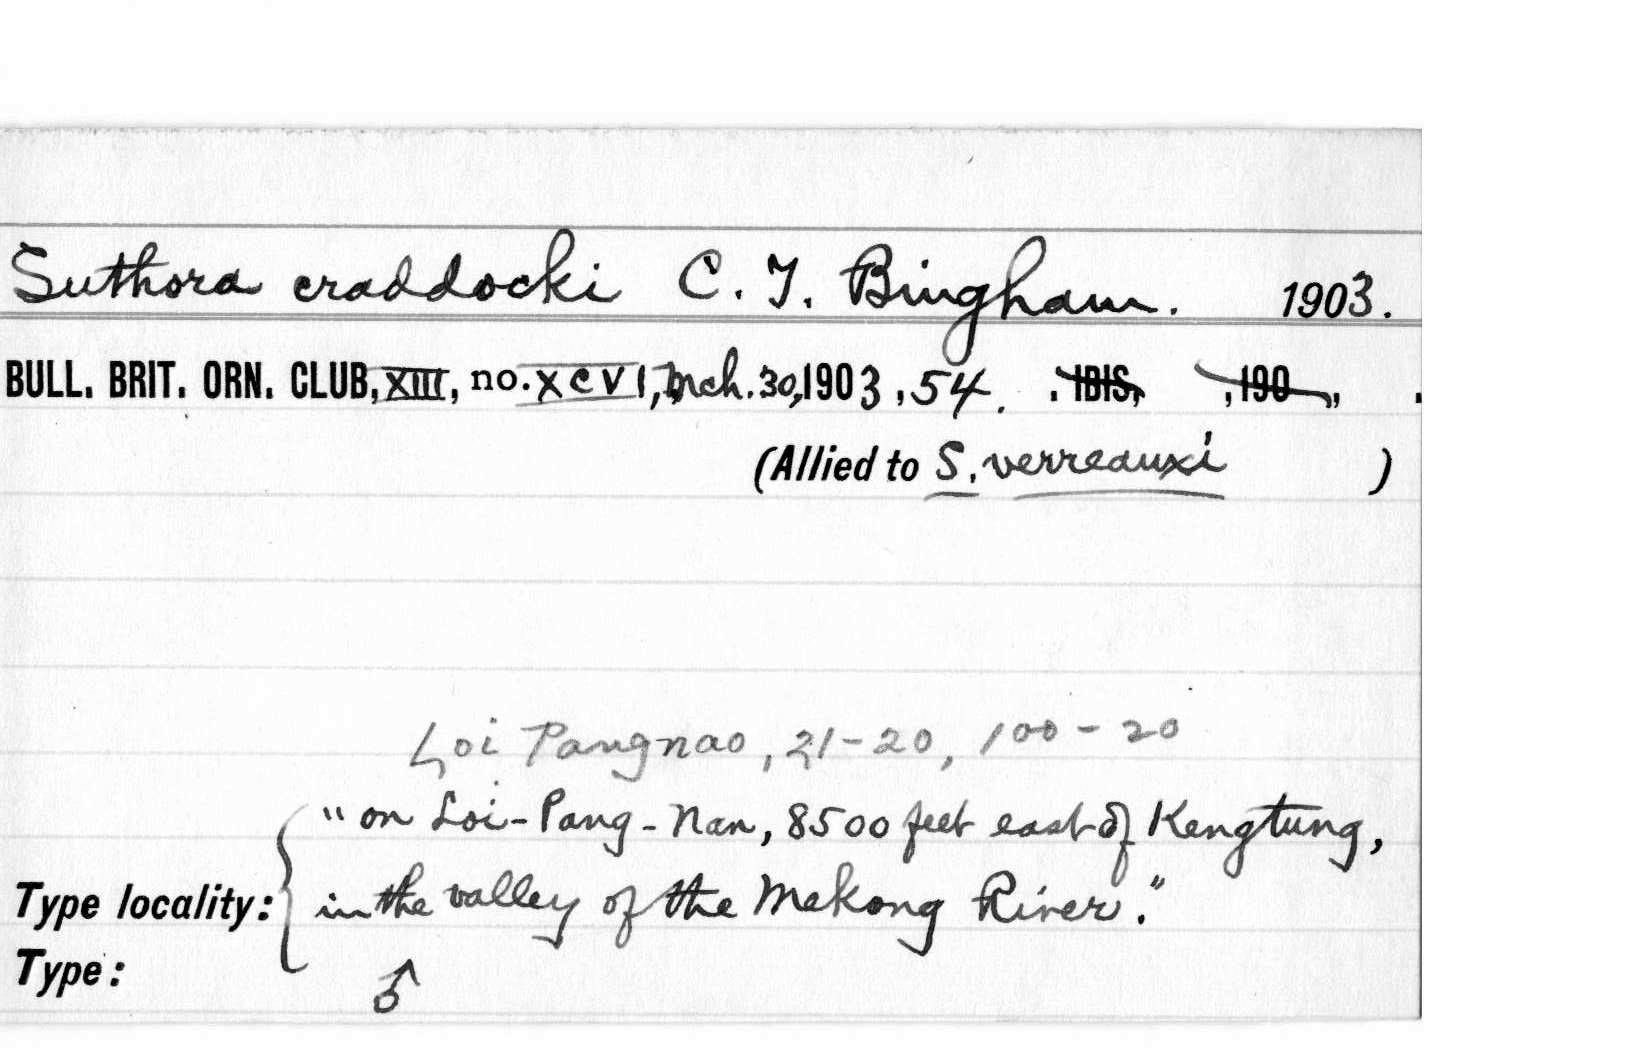 Suthora craddocki C. T. Bingham. 1903.
BULL. BRIT. ORN. CLUB, XIII, no. XCVI, Mch. 30, 1903, 54. . IBIS, , 190 ,, .
(Allied to S. verreauxi )
Loi Pangnao, 21-20, 100-20
"on Loi-Pang-Nan, 8500 feet east of Kengtung,
Type locality: in the valley of the Mekong River."
Type: ♂